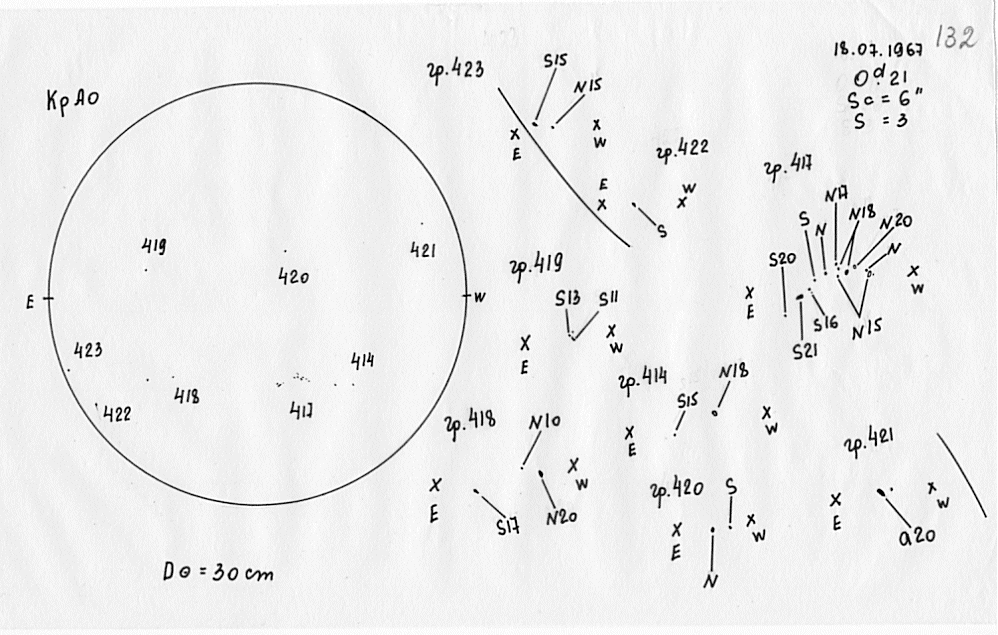 132
18.07.1967
0ᵈ.21
Sc = 6"
S = 3
КрАО
E
W
419
420
421
423
422
418
417
414
D⊙ = 30 cm
гр.423
S15
N15
X
E
X
W
гр.422
E
X
W
X
S
гр.417
N17
S
N
N18
N20
N
S20
X
E
X
W
S16
S21
N15
гр.419
S13
S11
X
E
X
W
гр.414
N18
S15
X
E
X
W
гр.418
N10
X
E
X
W
S17
N20
гр.420
S
X
E
X
W
N
гр.421
X
E
X
W
a20